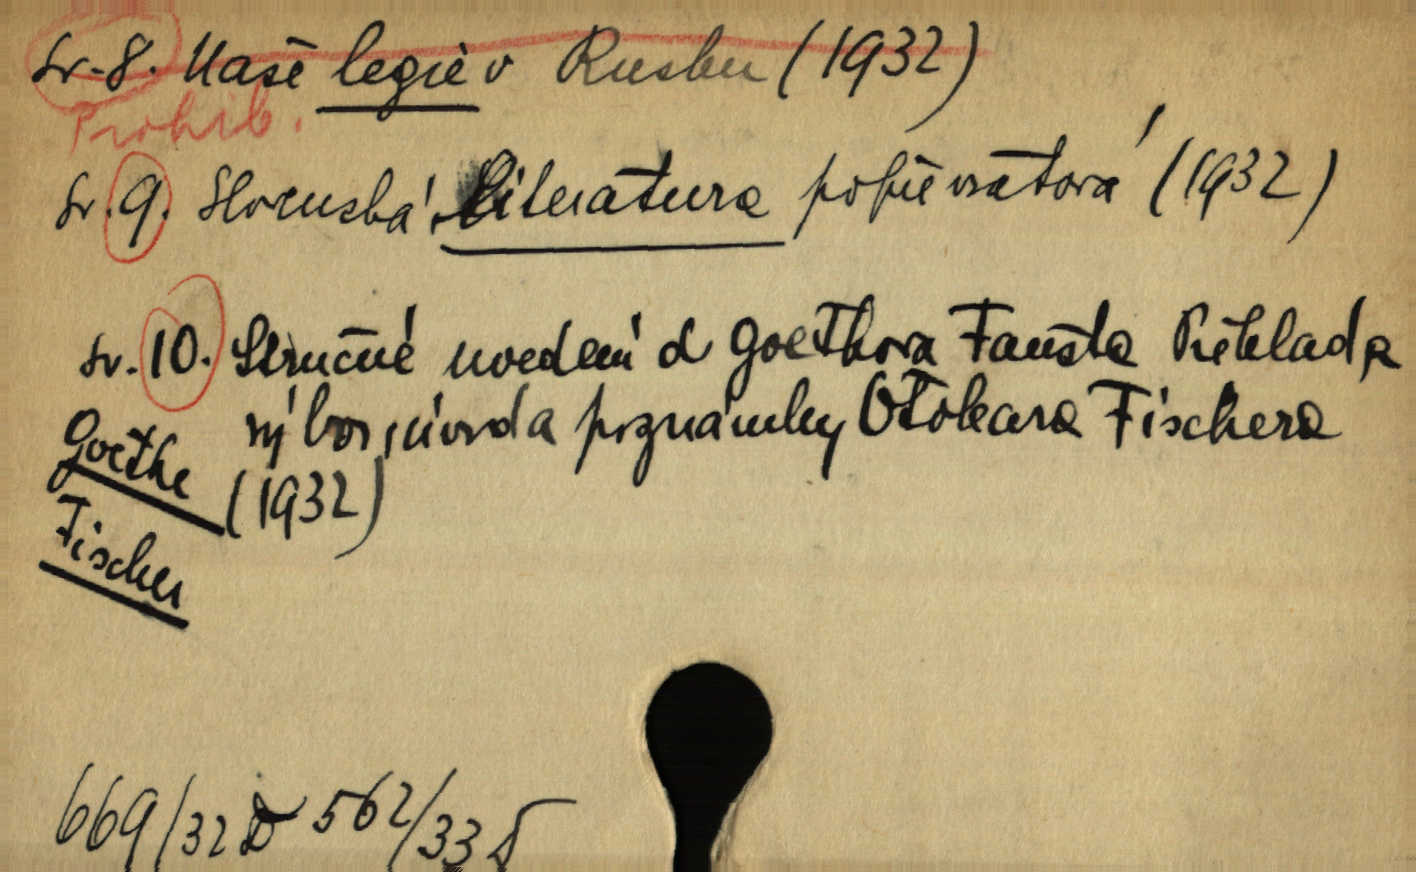 Sv. 8. Naše legie v Rusku (1932)
Prohib.
Sv. 9. Slovenská literatura popřevratová (1932)
Sv. 10. Stručné uvedení d Goethova Fausta Překlad a
Goethe výbor, úvod a poznámky Otokara Fischera
(1932)
Fischer
669/32 D 562/33 D